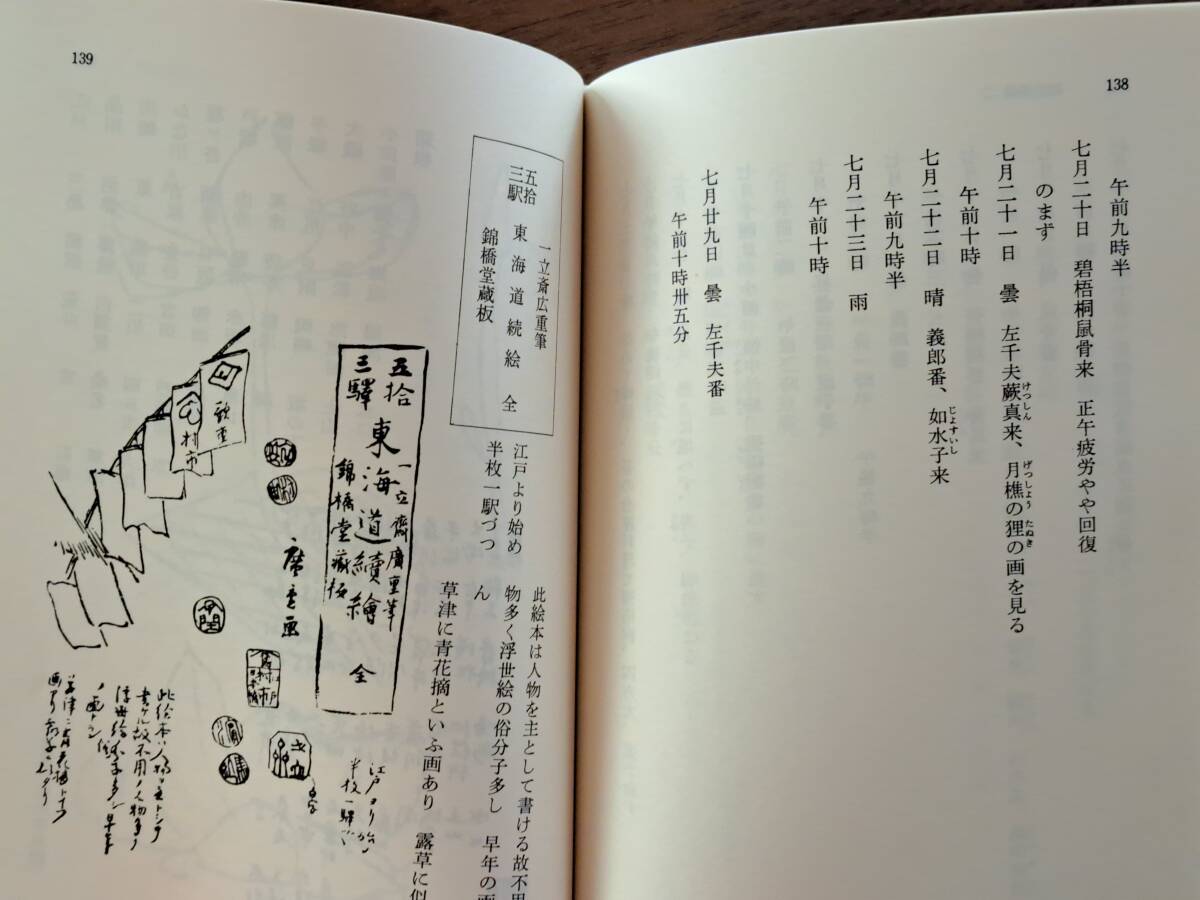 138
午前九時半
七月二十日 碧梧桐鼠骨来 正午疲労やや回復
のまず
七月二十一日 曇 左千夫蕨真来、月樵の狸の画を見る
けっしん
げっしょう
たぬき
午前十時
七月二十二日 晴 義郎番、如水子来
じょすいし
午前九時半
七月二十三日 雨
午前十時
七月廿九日 曇 左千夫番
午前十時卅五分
139
一立斎広重筆
五拾三駅 東海道続絵 全
錦橋堂蔵板
江戸より始め
半枚一駅づつ
此絵本は人物を主として書ける故不用
物多く浮世絵の俗分子多し 早年の画
ん
草津に青花摘といふ画あり 露草に似
五拾三驛 東海道續繪 全
一立齋廣重筆
錦橋堂蔵板
歌重
村市
廣重画
江戸ヨリ始メ
半枚一驛ヅ
此絵本ハ人物ヲ主トシテ
書ケル故不用ノ人物多ク
浮世絵ノ俗分子多シ早年
ノ画ナラン
草津ニ青花摘トイフ
画アリ